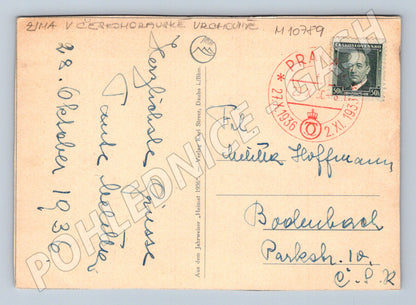 ZIMA V ČESKOMORAVSKÉ VRCHOVINĚ
M10789
Herzlichste Grüsse
Tante
28. Oktober 1936.
Aus dem Jahrweiser „Heimat 1936“
Verlag Karl Stroer, Dauba i. Böhm.
ČESKOSLOVENSKO
50h 50h
* PRA
27.X.1936 2.XI.193
Frl.
Hoffmann
Bodenbach
Parkstr. 10.
Č.S.R
POHLEDNICE